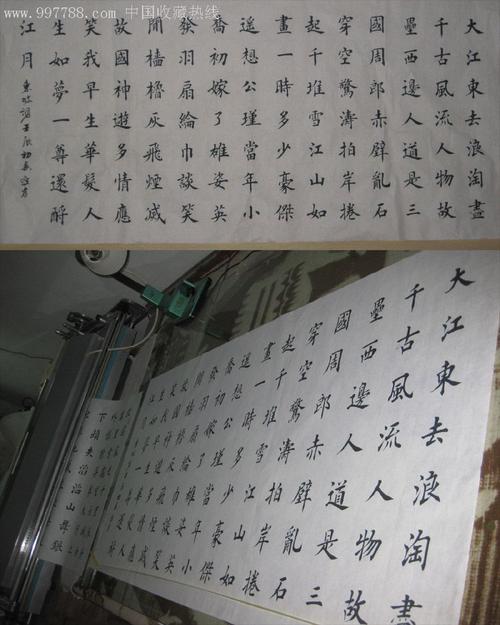 www.997788.com 中国收藏热线
大江東去浪淘盡
千古風流人物故
壘西邊人道是三
國周郎赤壁亂石
穿空驚濤拍岸捲
起千堆雪江山如
畫一時多少豪傑
遙想公瑾當年小
喬初嫁了雄姿英
發羽扇綸巾談笑
間檣櫓灰飛煙滅
故國神遊多情應
笑我早生華髮人
生如夢一尊還酹
江月
東坡詞壬辰初春
大江東去浪淘盡
千古風流人物故
壘西邊人道是三
國周郎赤壁亂石
穿空驚濤拍岸捲
起千堆雪江山如
畫一時多少豪傑
遙想公瑾當年小
喬初嫁了雄姿英
發羽扇綸巾談笑